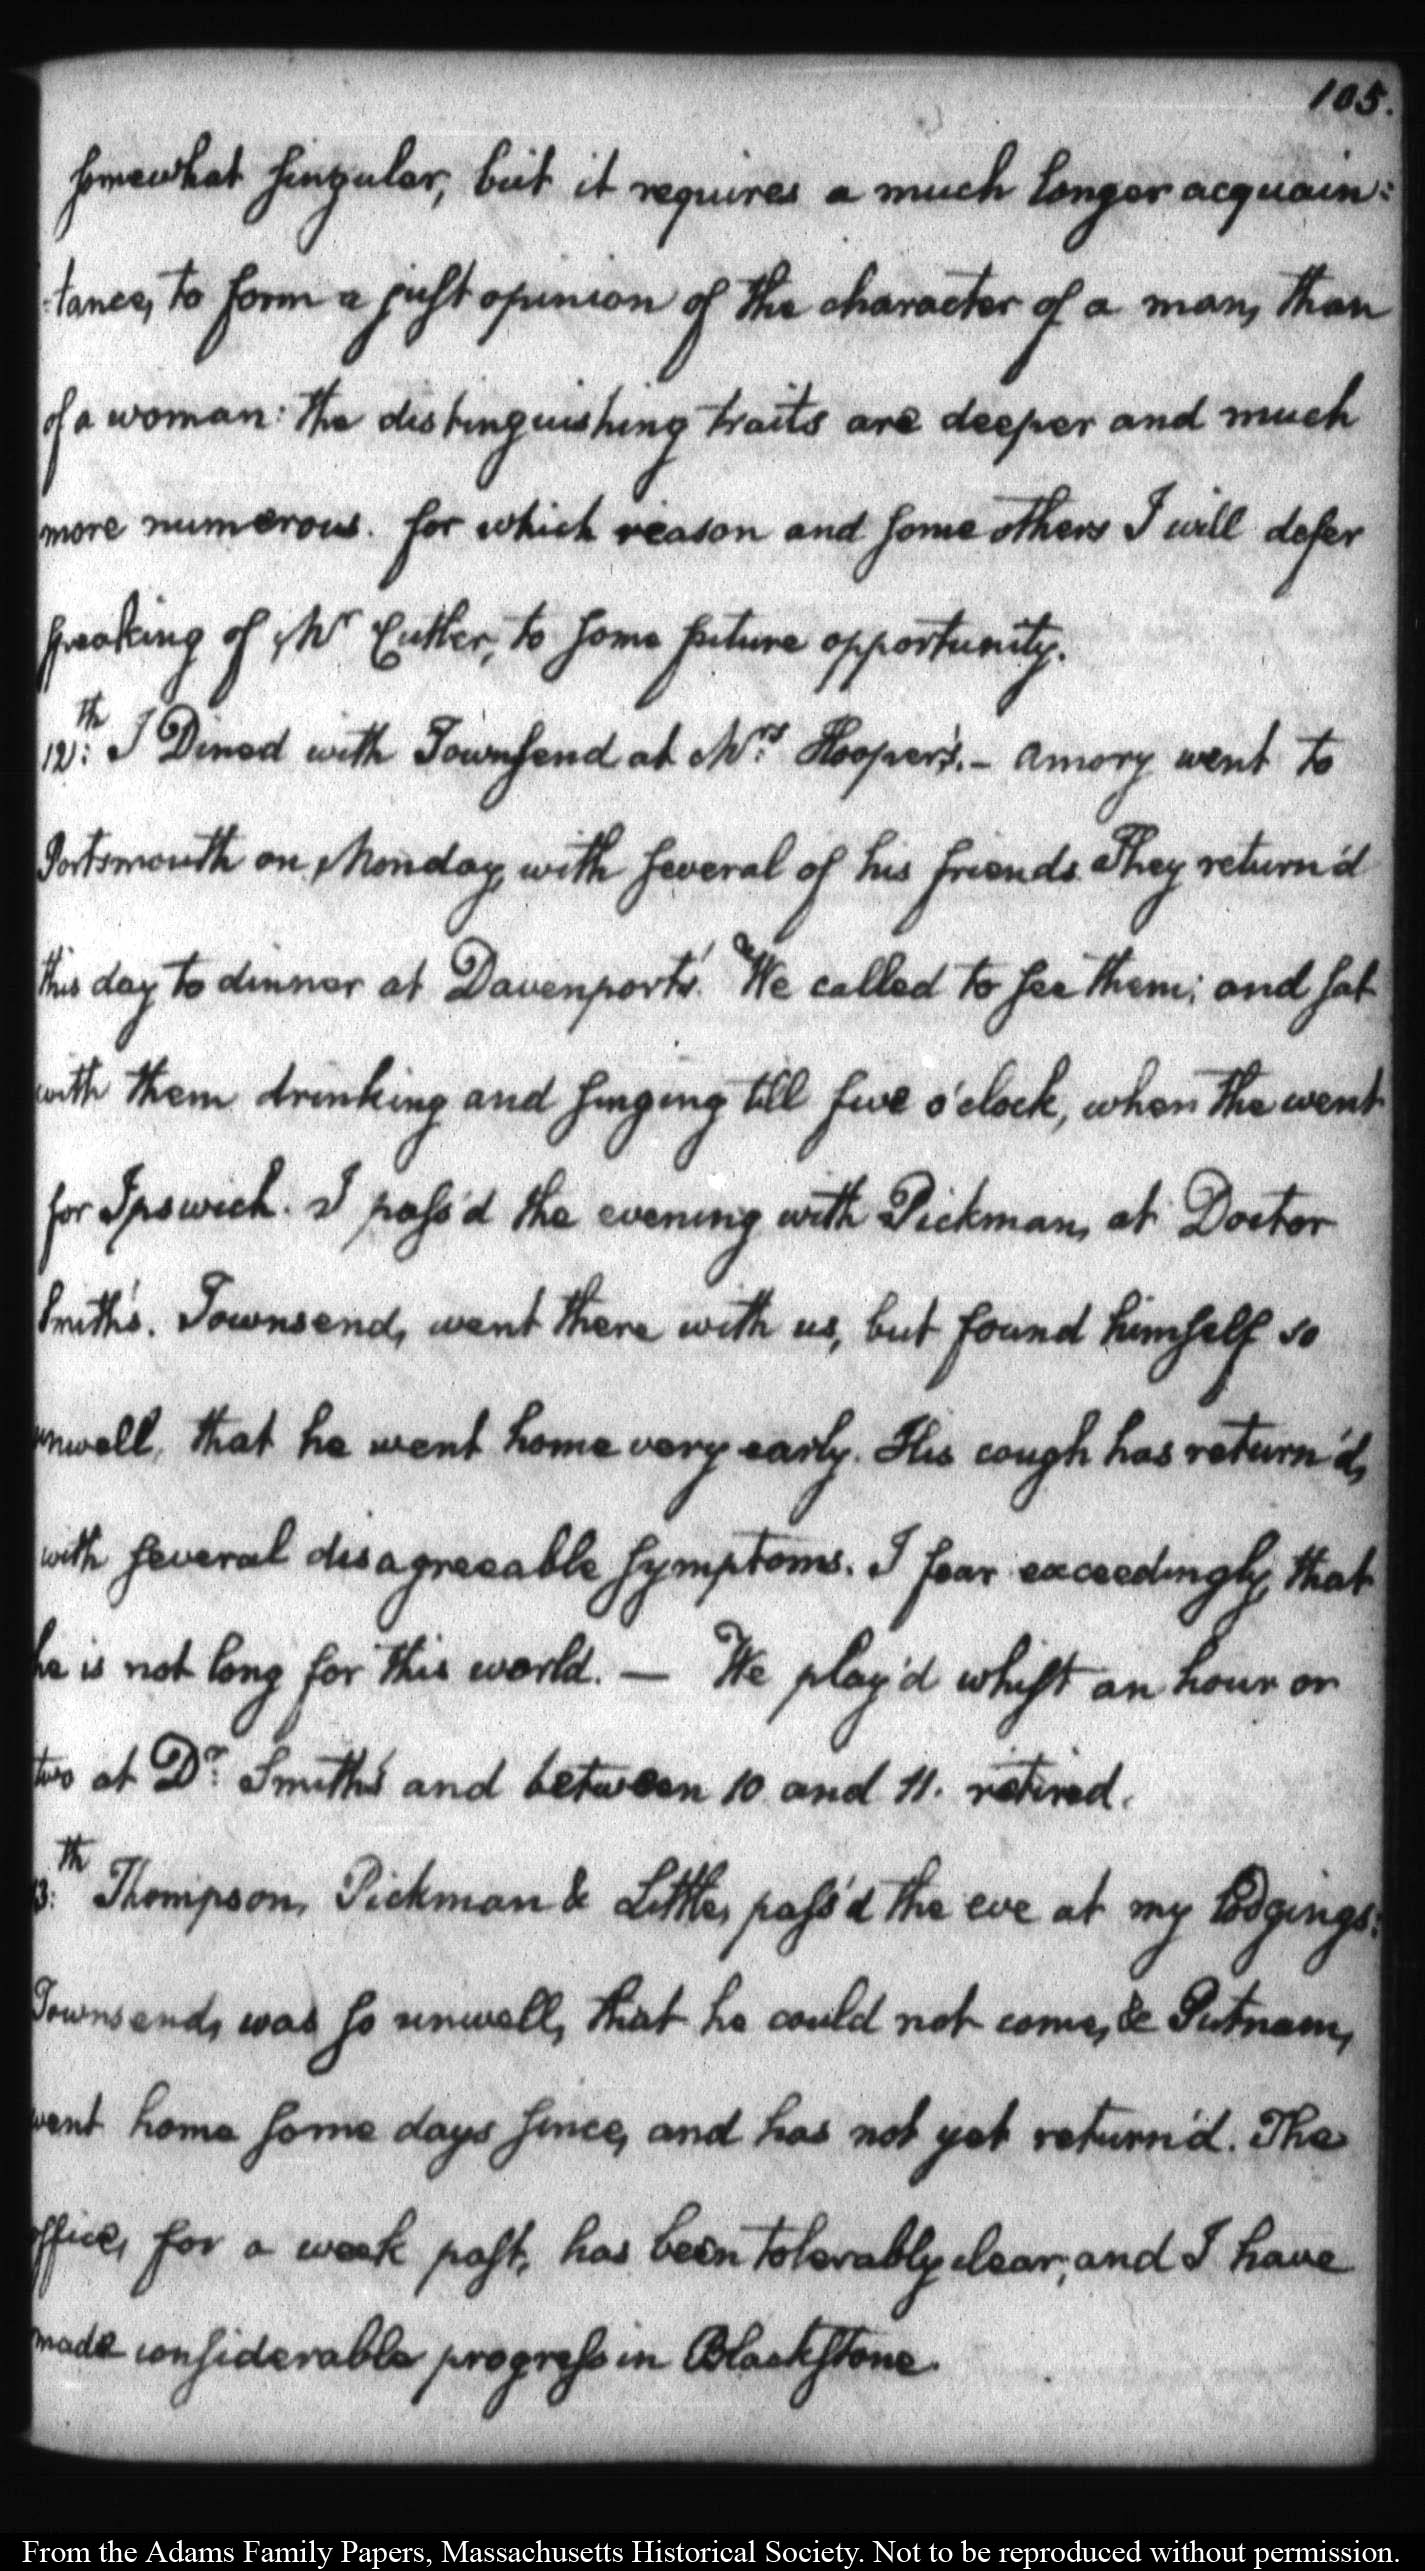 105.
somewhat singular, but it requires a much longer acquain:
:tance, to form a just opinion of the character of a man, than
of a woman: the distinguishing traits are deeper and much
more numerous. for which reason and some others I will defer
speaking of Mr Cutler, to some future opportunity.
12th: I Dined with Townsend at Mrs: Hooper's.— Amory went to
Portsmouth on Monday, with several of his friends. They return'd
this day to dinner at Davenport's. We called to see them; and sat
with them drinking and singing till five o'clock, when the went
for Ipswich. I pass'd the evening with Pickman, at Doctor
Smith's. Townsend, went there with us, but found himself so
unwell, that he went home very early. His cough has return'd,
with several disagreeable symptoms. I fear exceedingly, that
he is not long for this world. — We play'd whist an hour or
two at Dr: Smith's and between 10 and 11. retired.
13th: Thompson, Pickman & Little, pass'd the eve at my lodgings:
Townsend, was so unwell, that he could not come, & Putnam,
went home some days since, and has not yet return'd. The
office, for a week past, has been tolerably clear; and I have
made considerable progress in Blackstone.
From the Adams Family Papers, Massachusetts Historical Society. Not to be reproduced without permission.